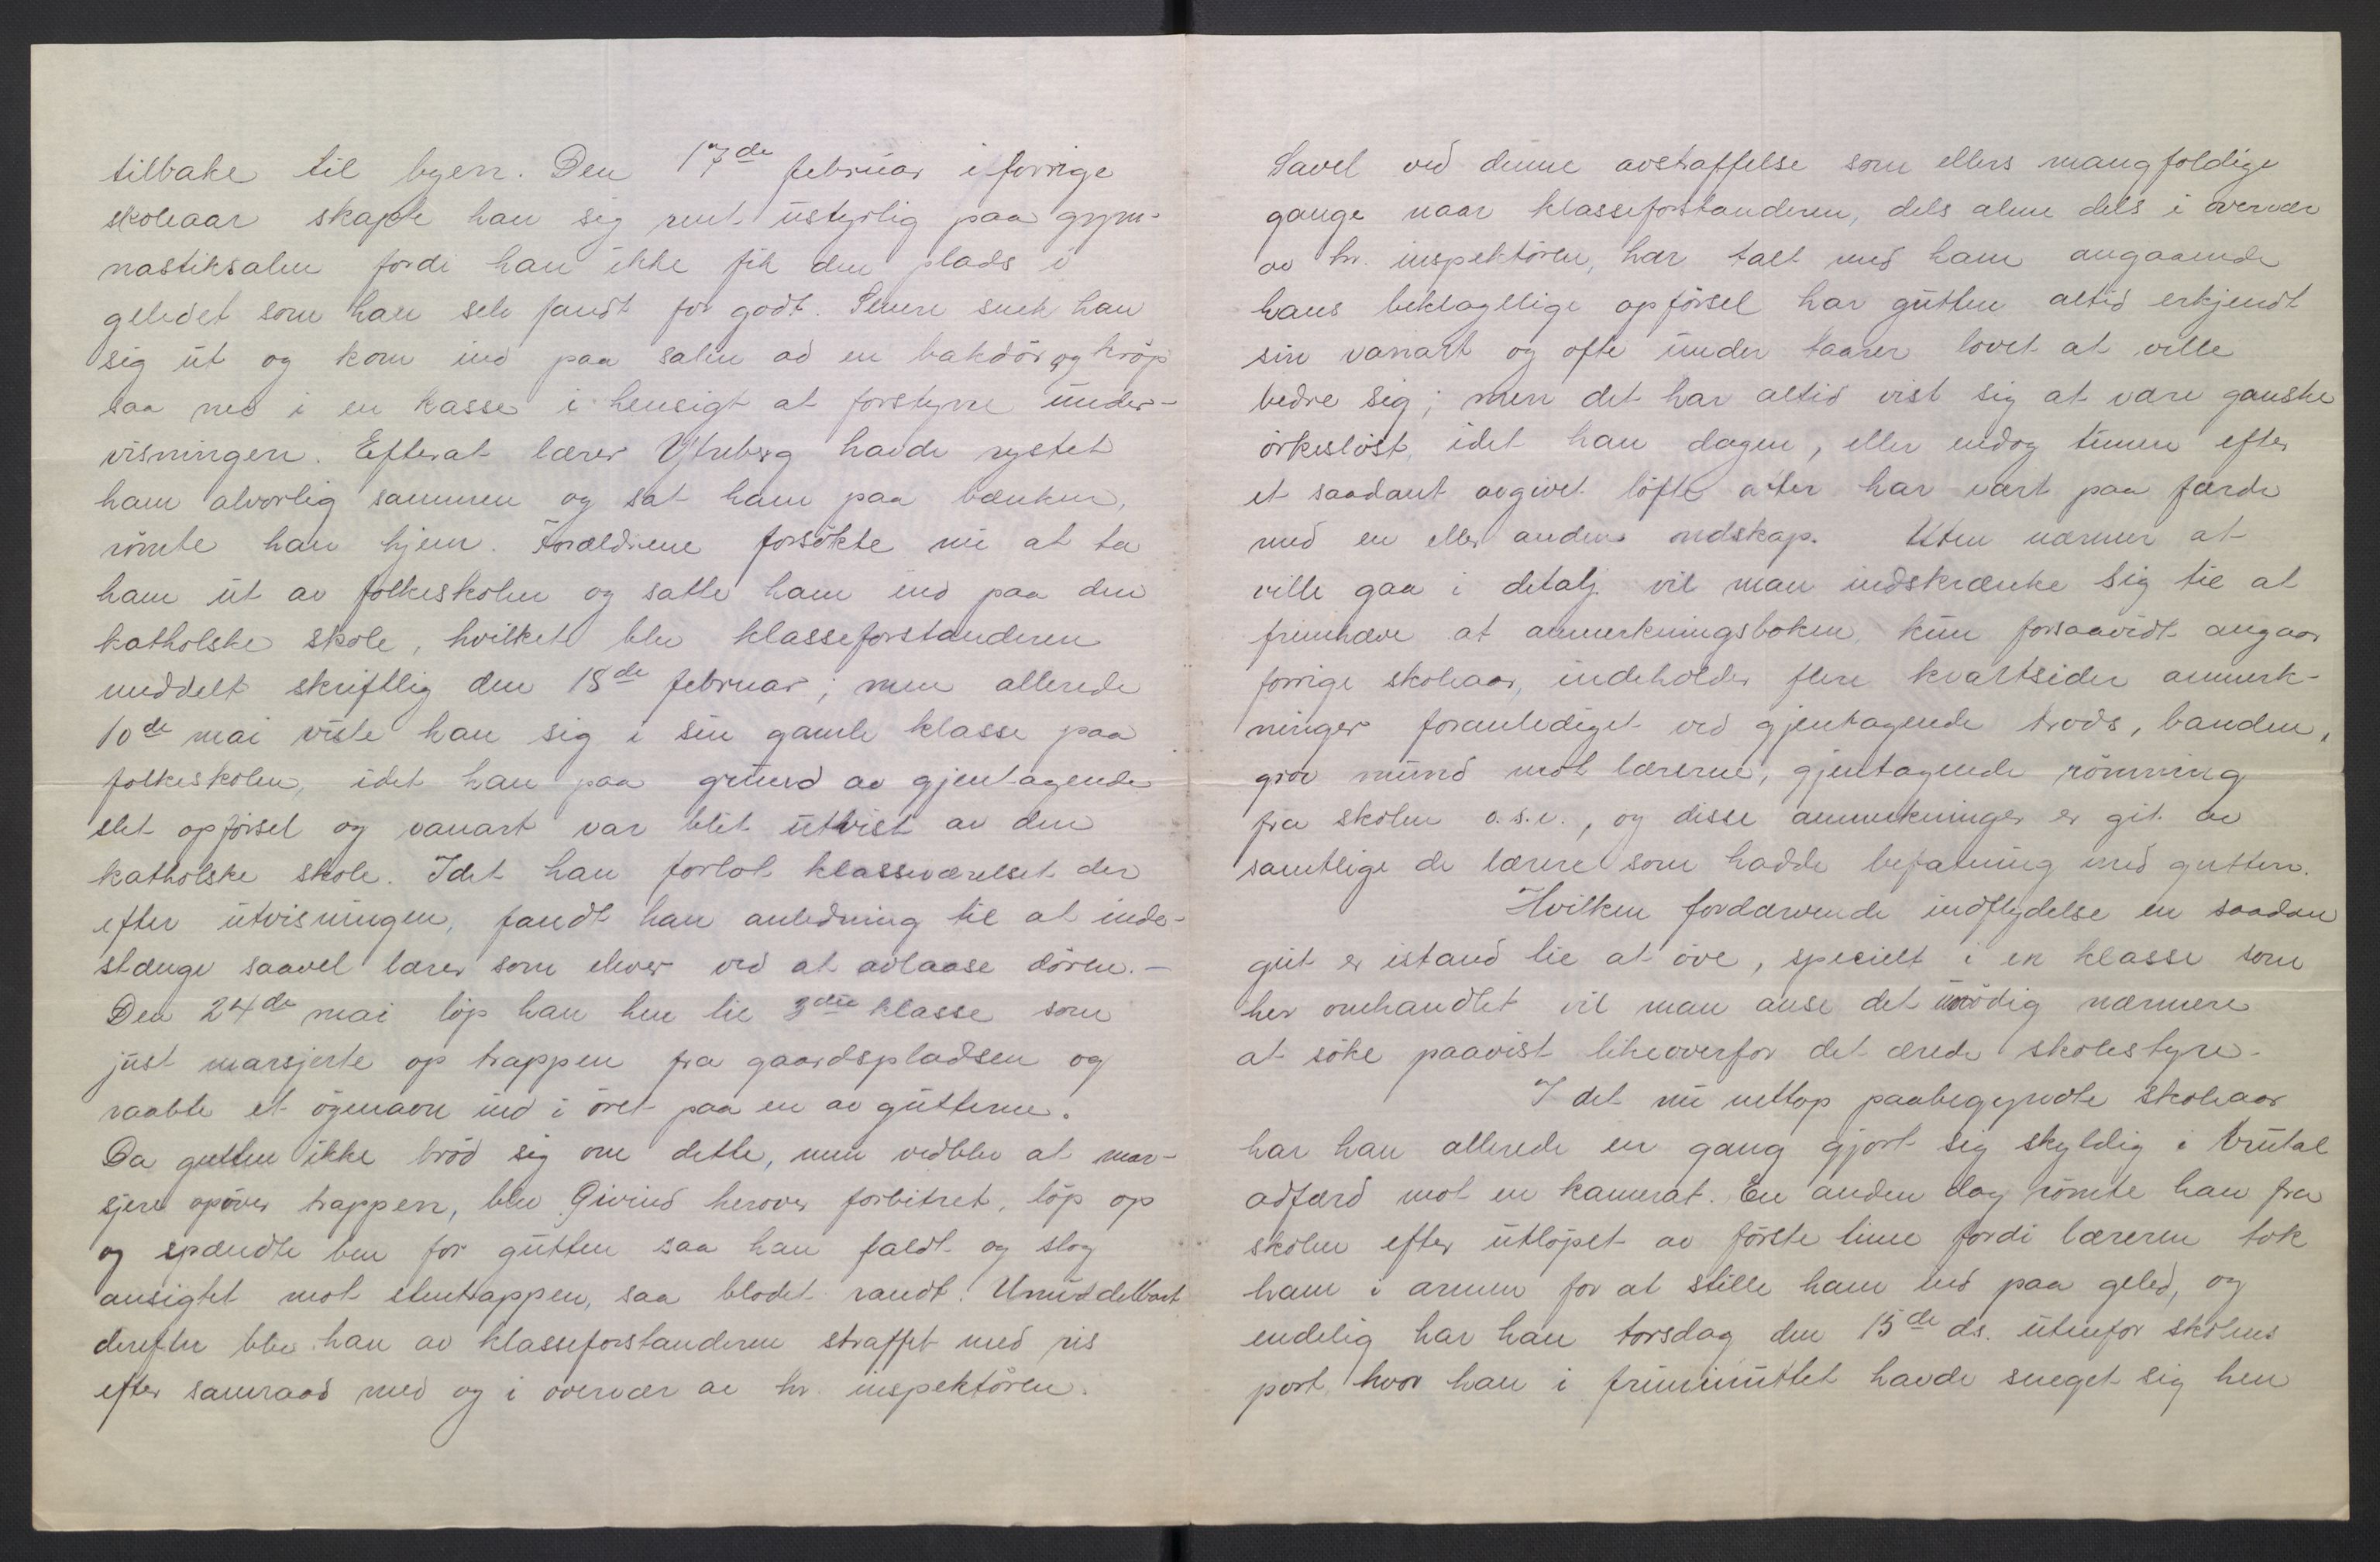 tilbake til byen. Den 17de februar i forrige
skoleaar skapte han sig rent ustyrlig paa gym-
nastiksalen fordi han ikke fik den plads i
geledet som han selv fandt for godt. Senere snek han
sig ut og kom ind paa salen ad en bakdör og kröp
saa ned i en kasse i hensigt at forstyrre under-
visningen. Efterat lærer Ytreberg havde rystet
ham alvorlig sammen og sat ham paa bænken,
römte han hjem. Forældrene forsökte nu at ta
ham ut av folkeskolen og satte ham ind paa den
katholske skole, hvilket blev klasseforstanderen
meddelt skriftlig den 18de februar; men allerede
10de mai viste han sig i sin gamle klasse paa
folkeskolen, idet han paa grund av gjentagende
slet opförsel og vanart var blit utvist av den
katholske skole. Idet han forlot klasseværelset der
efter utvisningen, fandt han anledning til at inde-
stænge saavel lærer som elever ved at avlaase dören. –
Den 24de mai löp han hen til 3die klasse som
just marsjerte op trappen fra gaardspladsen og
raabte et ögenavn ind i öret paa en av guttene.
Da gutten ikke bröd sig om dette, men vedblev at mar-
sjere opover trappen, blev Eivind herover forbitret, löp op
og spændte ben for gutten saa han faldt og slog
ansigtet mot stentrappen, saa blodet randt. Umiddelbart
derefter blev han av klasseforstanderen straffet med ris
efter samraad med og i overvær av hr. inspektören.
Savel ved denne avstraffelse som ellers mangfoldige
gange naar klasseforstanderen, dels alene dels i overvær
av hr. inspektören, har talt med ham angaaende
hans beklagelige opförsel har gutten altid erkjendt
sin vanart og ofte under taarer lovet at ville
bedre sig; men det har altid vist sig at være ganske
örkeslöst, idet han dagen, eller endog timen efter
et saadant avgivet löfte atter har vært paa færde
med en eller anden ondskap. Uten nærmere at
ville gaa i detalj vil man indskrænke sig til at
fremhæve at anmerkningsboken, kun forsaavidt angaar
forrige skoleaar, indeholder flere kvartsider anmerk-
ninger foranlediget ved gjentagende trods, banden,
grov mund mot lærerne, gjentagende römning
fra skolen o.s.v., og disse anmerkninger er git av
samtlige de lærere som hadde befatning med gutten.
Hvilken fordærvende indflydelse en saadan
gut er istand til at öve, specielt i en klasse som
her omhandlet vil man anse det unödig nærmere
at söke paavist likeoverfor det ærede skolestyre.
I det nu nettop paabegyndte skoleaar
har han allerede en gang gjort sig skyldig i brutal
adfærd mot en kamerat. En anden dag römte han fra
skolen efter utlöpet av förste time fordi læreren tok
ham i armen for at stille ham ind paa geled, og
endelig har han torsdag den 15de ds. utenfor skolens
port, hvor han i friminuttet havde sneget sig hen